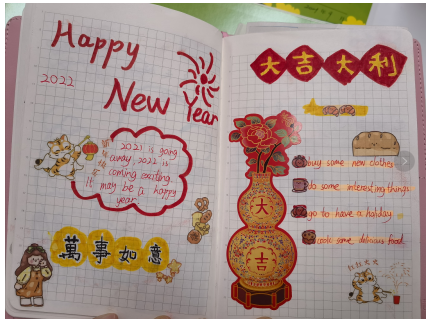 Happy
2022
New Year
2021 is going
away, 2022 is
coming easting.
It may be a happy
year
萬事如意
大吉大利
大
吉
buy some new clothes
do some interesting things
go to have a holiday
cook some delicious food